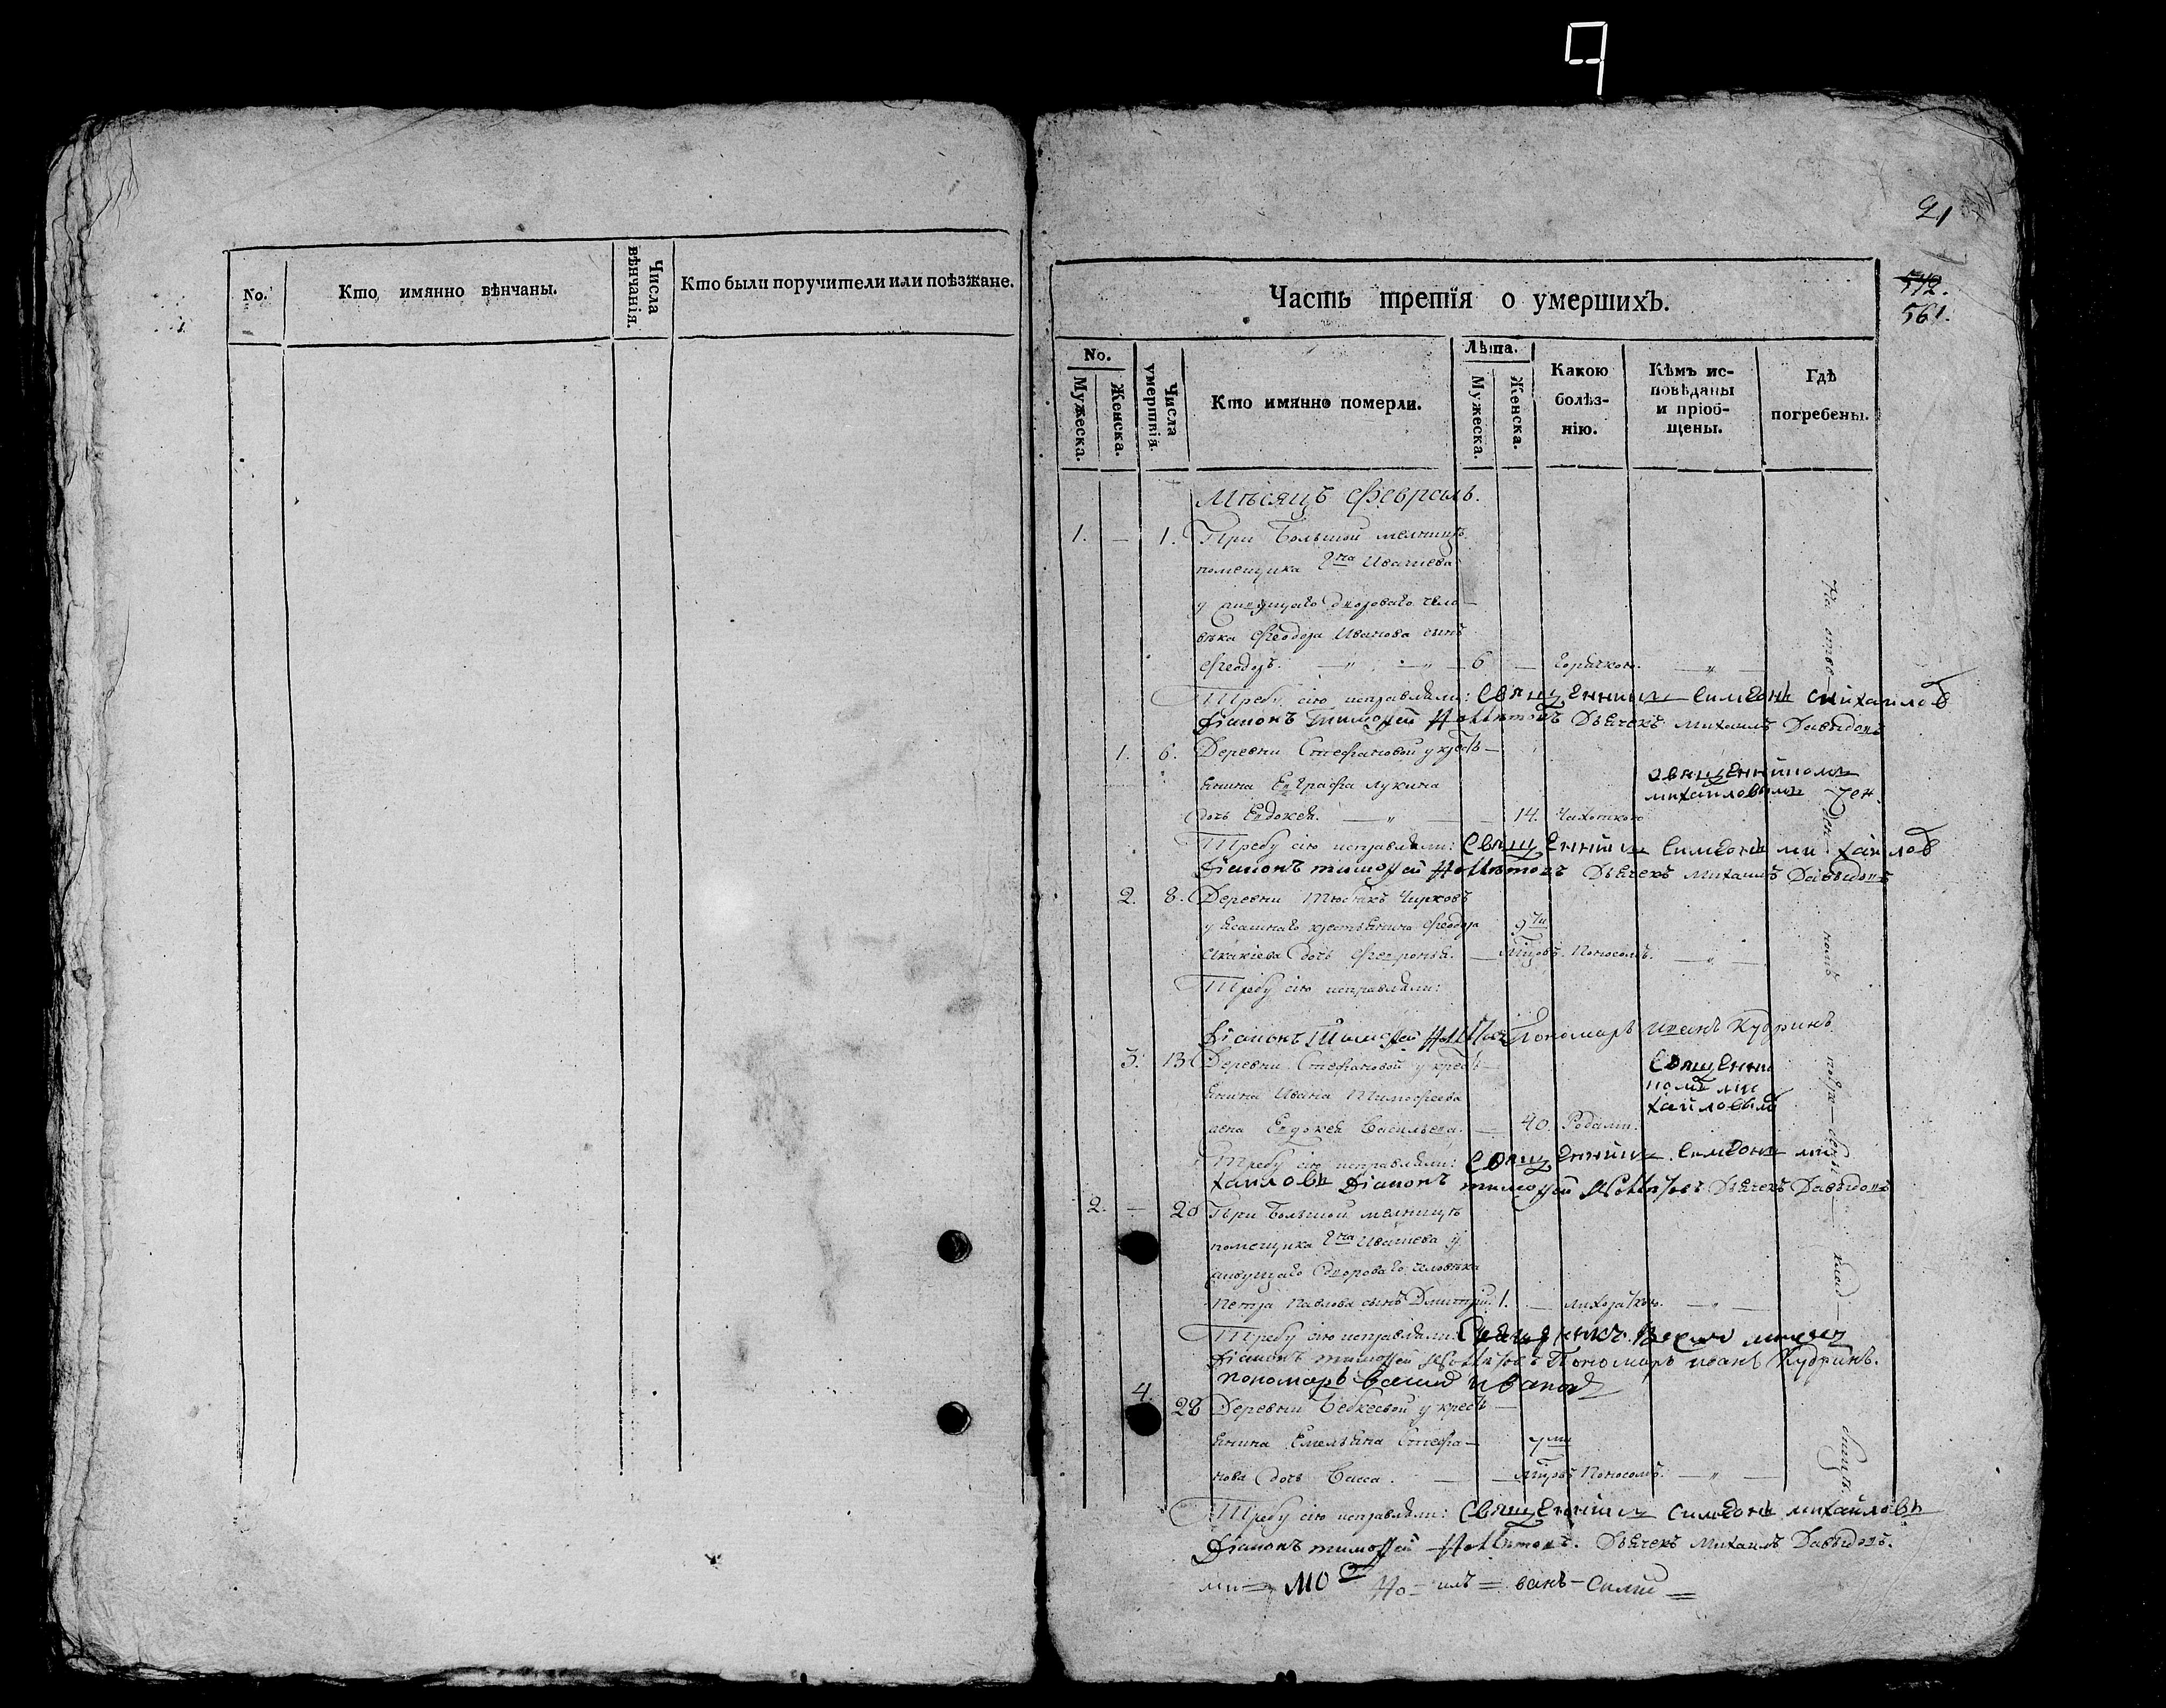 9
No.
Кто имянно вѣнчаны.
Числа
вѣнчанія.
Кто были поручители или поѣзжане.
21
542.
561.
Часть третія о умершихъ.
No.
Мужеска.
Женска.
Числа
умертвія.
Кто имянно померли.
Лѣта.
Мужеска.
Женска.
Какою
болѣз-
нію.
Кѣмъ ис-
повѣданы
и пріоб-
щены.
Гдѣ
погребены.
Мѣсяцъ Февраль.
1. — 1. При Большой мелницѣ
помещика Гна Ивашева
у живущаго двороваго чело-
вѣка Феодора Иванова сынъ
Феодоръ. — „ — „ — 6 — Горячкою. — „ —
Требу сію исправляли: Священникъ Симеонъ Михайловъ
Діаконъ Тимофей Дьячекъ Михаилъ Давыдовъ
1. 6. Деревни Стефановой у кресть-
янина Евграфа Лукина
дочь Евдокея. — „ — 14. Чахоткою
священникомъ
михайловымъ
Требу сію исправляли: Священникъ Симеонъ Михайловъ
Діаконъ Тимофей Дьячекъ Михаилъ Давыдовъ
2. 8. Деревни Тюбякъ Чирковъ
у ясашнаго крестьянина Феодора
Акакіева дочь Феврония. — 9ти мцовъ. Поносомъ. — „ —
Требу сію исправляли:
Діаконъ Тимофей Пономарь Иванъ Кудринъ
3. 13 Деревни Стефановой у кресть-
янина Ивана Тимофеева
жена Евдокея Васильева. — 40. Родами.
Священни
комъ ми
хайловымъ
Требу сію исправляли: Священникъ Симеонъ Ми
хайловъ Діаконъ Тимофей Дьячекъ Давыдовъ
2. — 20 При Большой мелницѣ
помещика Гна Ивашева у
живущаго двороваго человѣка
Петра Павлова сынъ Дмитрій. 1. — лихораткою. — „ —
Требу сію исправляли: Священникъ
Діаконъ Тимофей Пономарь Иванъ Кудринъ.
пономарь Иванов
4. 28 Деревни Бебкеевой у кресть-
янина Емельяна Стефа-
нова дочь Васса. — 7ми мцовъ Поносомъ. — „ —
Требу сію исправляли: Священникъ Симеонъ Михайловъ
Діаконъ Тимофей Дьячекъ Михаилъ Давыдовъ.
На отве- ден- номъ кладбищѣ.